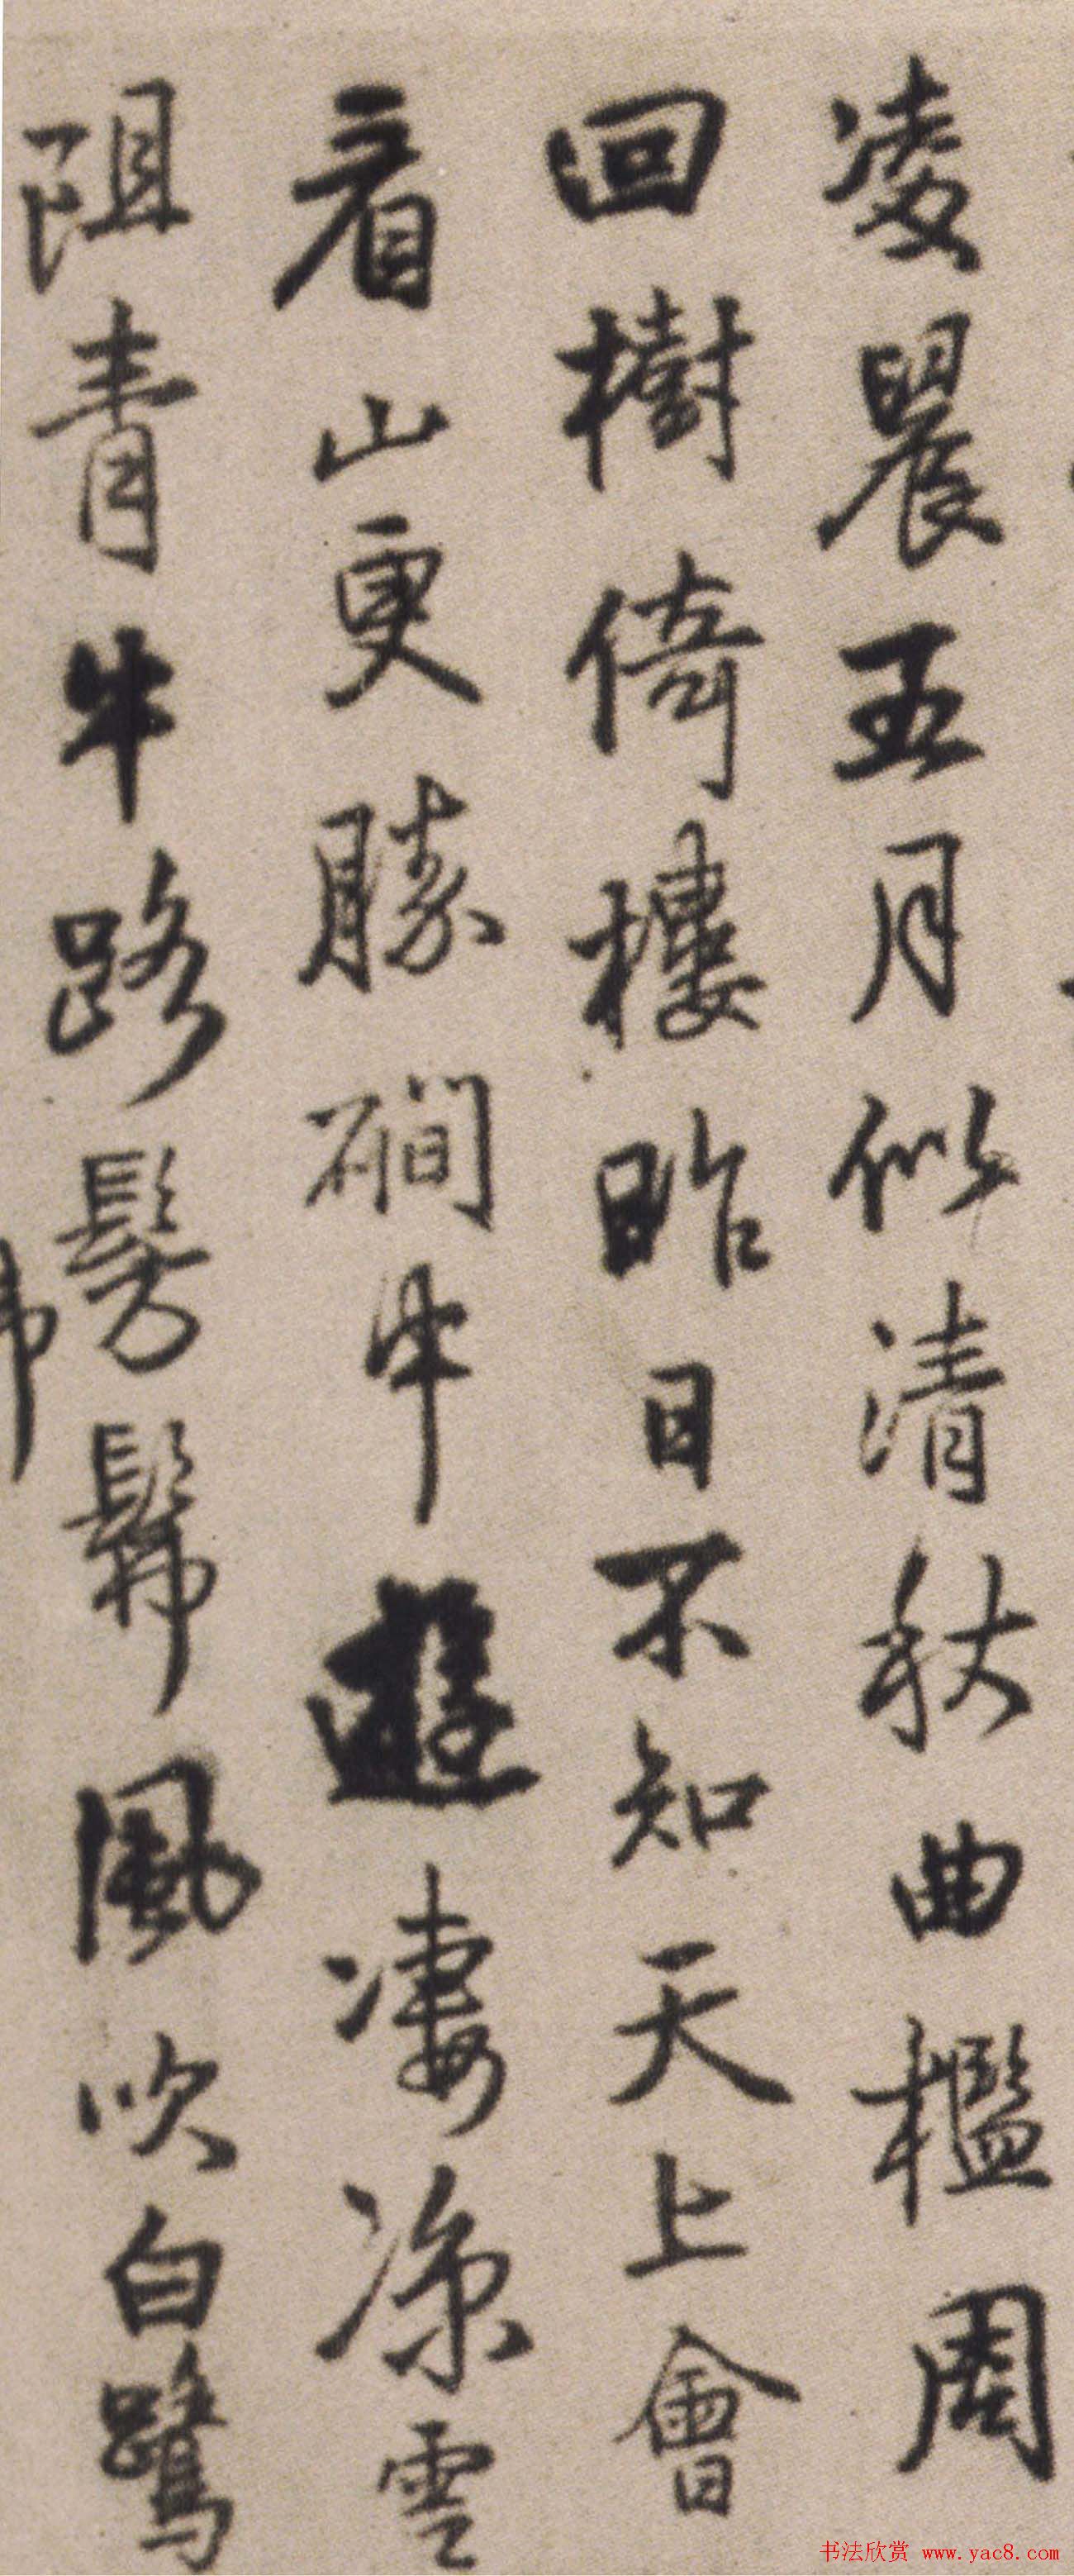 凌晨五月似清秋曲檻周
回樹倚樓昨日不知天上會
看山更勝磵中遊淒涼雲
阻青牛路髣髴風吹白鷺
書法欣赏 www.yac8.com